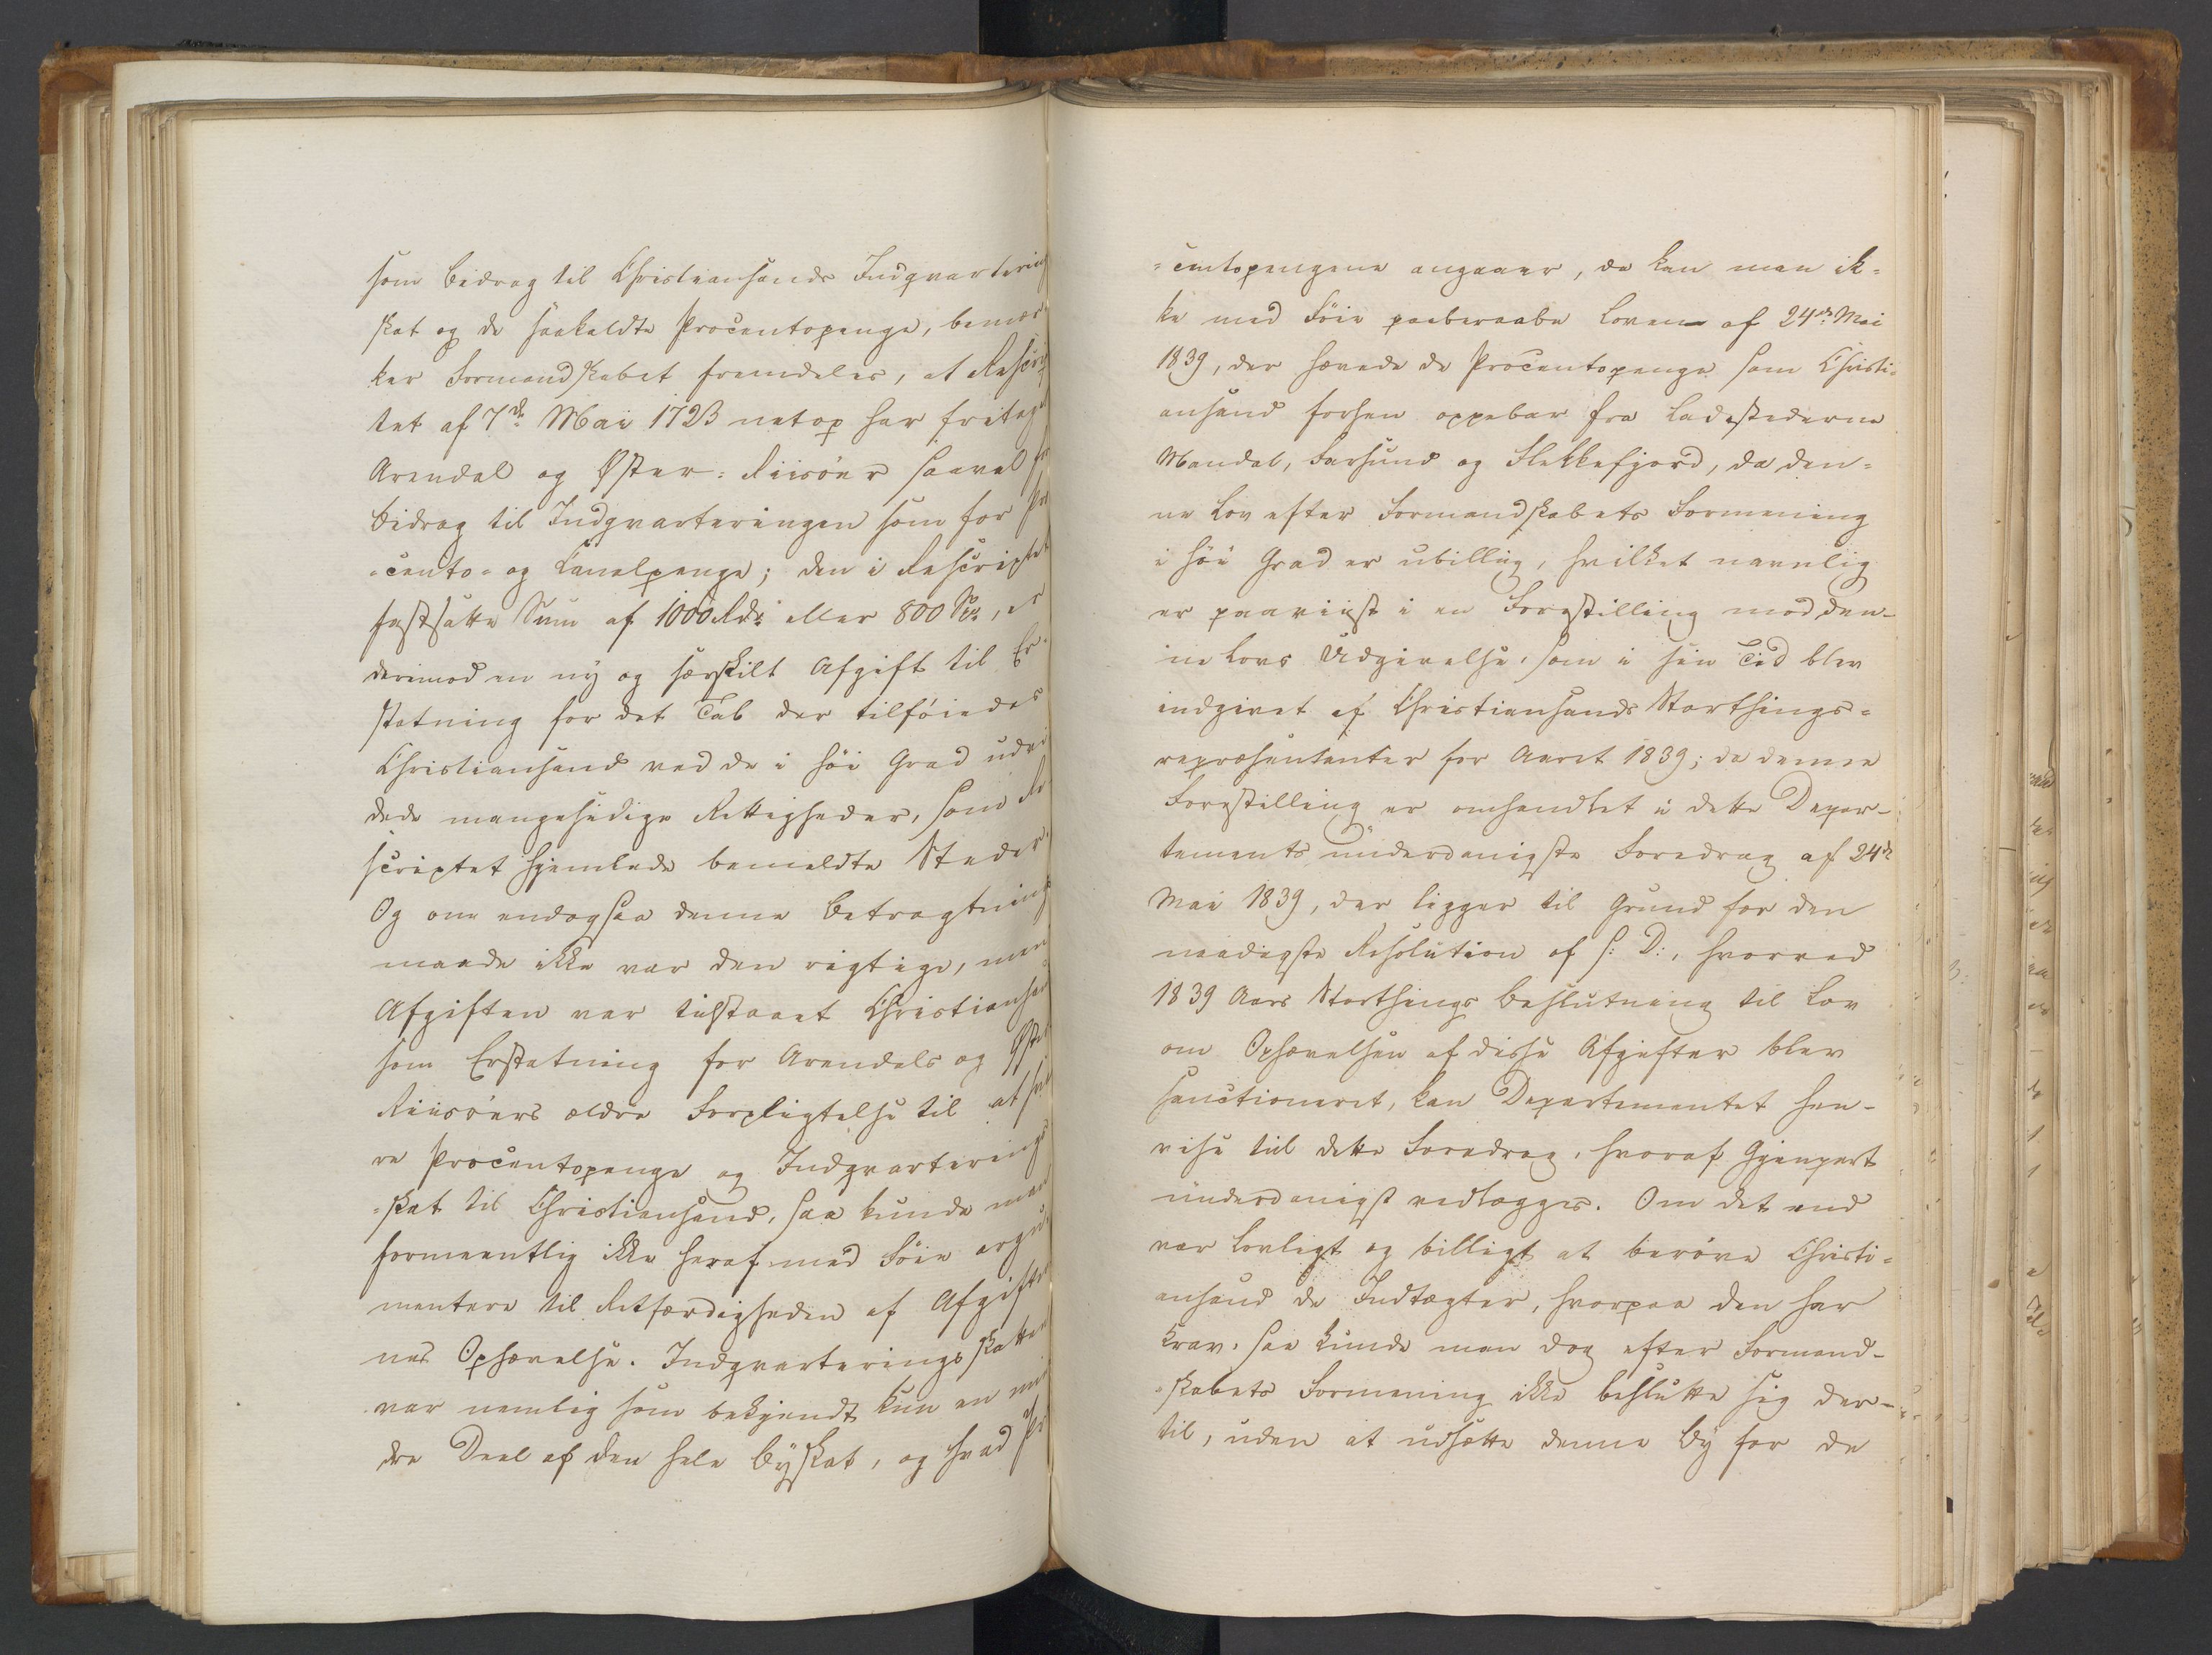 som Bidrag til Christiansands Indqvartering
skat og de saakaldte Procentopenge, bemær
ker Formandskabet fremdeles, at Rescrip
tet af 7de Mai 1723 netop har fritaget
Arendal og Øster-Riisöer saavel for
Bidrag til Indqvarteringen som for Pro
-cento- og Canalpenge; den i Rescriptet
fastsatte Sum af 1000 Rdr eller 800 Spd, er
derimod en ny og særskilt Afgift til Er
statning for det Tab der tilföiedes
Christiansand ved de i höi Grad udvi
dede mangesidige Rettigheder, som Re
scriptet hjemlede bemeldte Steder.
Og om endogsaa denne Betragtnings
maade ikke var den rigtige, men
Afgiften var tilstaaet Christiansand
som Erstatning for Arendals og Öster
Riisöers ældre Forpligtelse til at sva
re Procentopenge og Indqvarterings
-skat til Christiansand, saa kunde man
formeentlig ikke heraf med Föie argu
mentere til Retfærdigheden af Afgifter
nes Ophævelse. Indqvarteringsskatten
var nemlig som bekjendt kun en min
dre Deel af den hele Byskat, og hvad Pro
-centopengene angaaer, da kan man ik-
ke med Föie paaberaabe Loven af 24de Mai
1839, der hævede de Procentopenge som Christi-
ansand forhen oppebar fra Ladestederne
Mandal, Farsund og Flekkefjord, da den-
ne Lov efter Formandskabets Formening
i höi Grad er ubillig, hvilket navnlig
er paaviist i en Forestilling mod den-
ne Lovs Udgivelse, som i sin Tid blev
indgivet af Christiansands Storthings-
repræsentanter for Aaret 1839; da denne
Forestilling er omhandlet i dette Depar-
tements underdanigste Foredrag af 24de
Mai 1839, der ligger til Grund for den
naadigste Resolution af s: D:, hvorved
1839 Aars Storthings Beslutning til Lov
om Ophævelsen af disse Afgifter blev
sanctioneret, kan Departementet hen-
vise til dette Foredrag, hvoraf Gjenpart
underdanigst vedlægges. Om det end
var lovligt og billigt at beröve Christi-
ansand de Indtægter, hvorpaa den har
Krav, saa kunde man dog efter Formand-
-skabets Formening ikke beslutte sig der-
til, uden at udsætte denne By for de